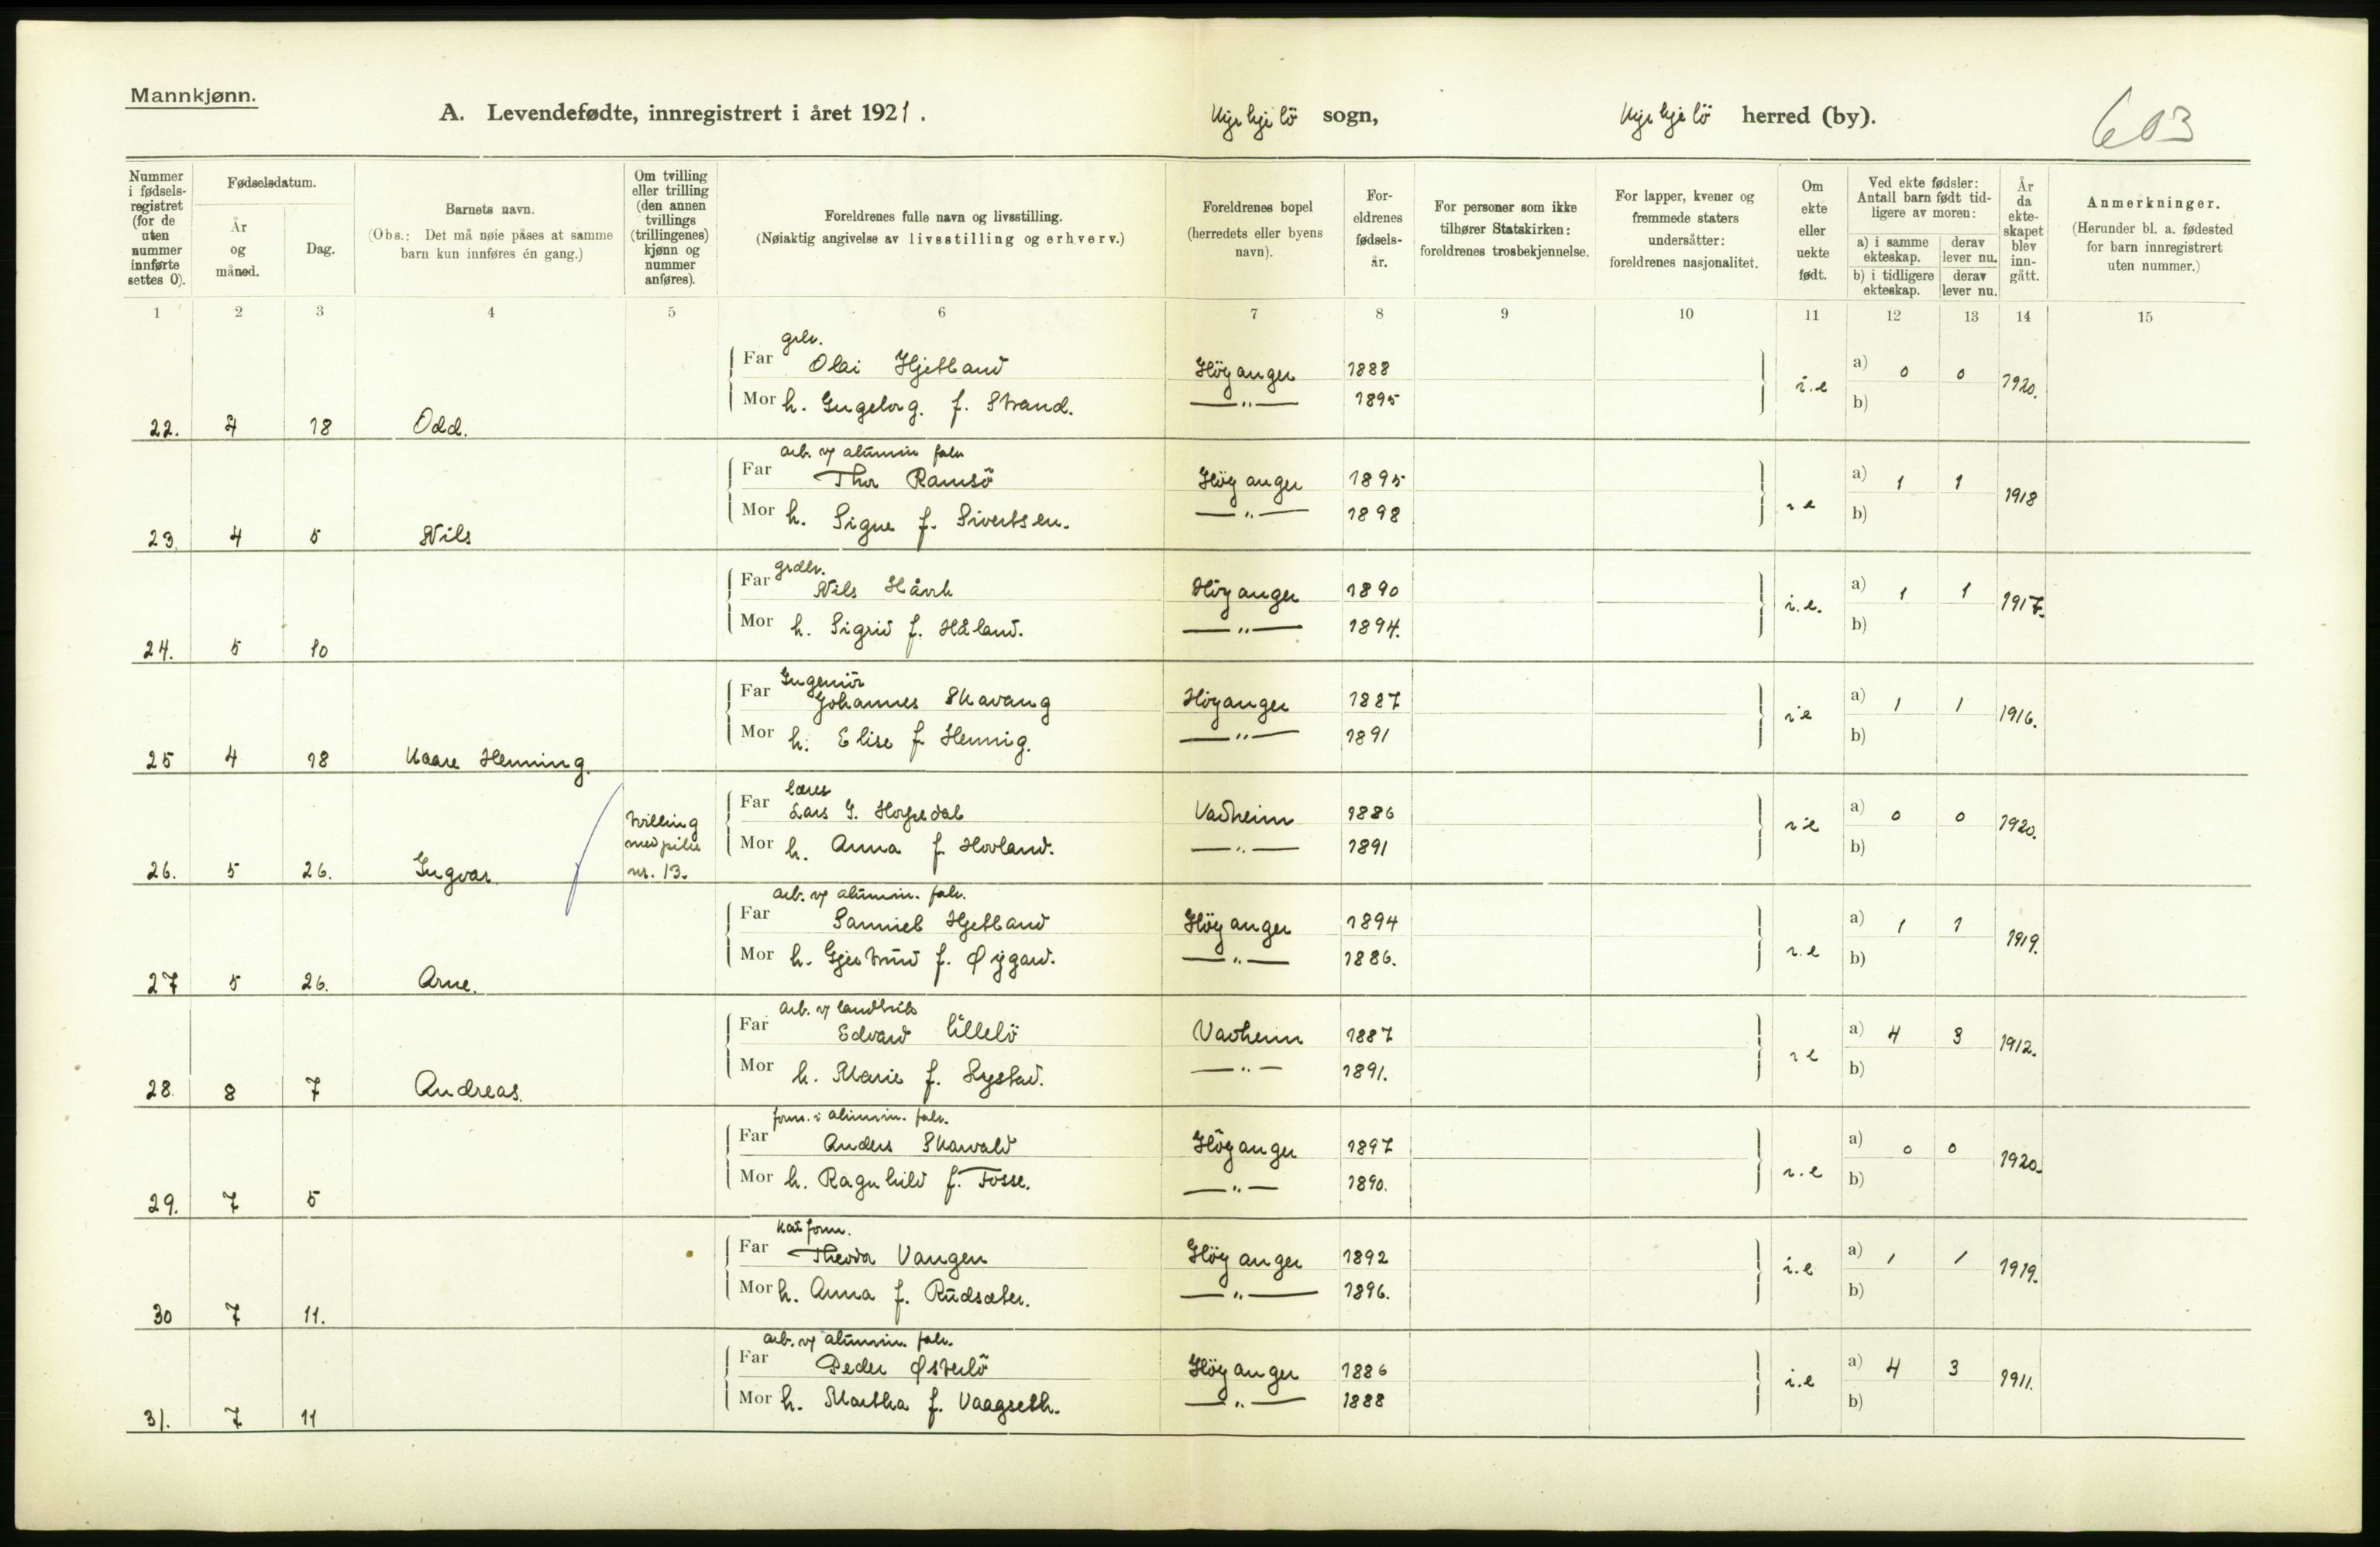 Mannkjønn.
A. Levendefødte, innregistrert i året 1921. Kyrkjebö sogn, Kyrkjebö herred (by). 603
Nummer i fødsels-registret (for de uten nummer innførte settes 0).
Fødselsdatum.
År og måned.
Dag.
Barnets navn.
(Obs.: Det må nøie påses at samme barn kun innføres én gang.)
Om tvilling eller trilling (den annen tvillings (trillingenes) kjønn og nummer anføres).
Foreldrenes fulle navn og livsstilling.
(Nøiaktig angivelse av livsstilling og erhverv.)
Foreldrenes bopel (herredets eller byens navn).
For-eldrenes fødsels-år.
For personer som ikke tilhører Statskirken: foreldrenes trosbekjennelse.
For lapper, kvener og fremmede staters undersåtter: foreldrenes nasjonalitet.
Om ekte eller uekte født.
Ved ekte fødsler: Antall barn født tid-ligere av moren:
a) i samme ekteskap.
derav lever nu.
b) i tidligere ekteskap.
derav lever nu.
År da ekte-skapet blev inn-gått.
Anmerkninger.
(Herunder bl. a. fødested for barn innregistrert uten nummer.)
1 2 3 4 5 6 7 8 9 10 11 12 13 14 15
Far Olai Hjetland Höyanger 1888 a) 0 0
Mor h. Ingeborg. f. Strand. —„— 1895 i.e b) 1920.
22. 18 Odd.
arb. v/ alumin fabr
Far Thor Ramsö Höyanger 1895 a) 1 1
Mor h. Signe f. Sivertsen. —„— 1898 i e b) 1918
23. 4 5 Nils
Far Nils Höyanger 1890 a) 1 1
Mor h. Sigrid f. Håland. —„— 1894. i.e. b) 1917.
24. 5 10
Ingeniör
Far Johannes Skavang Höyanger 1887 a) 1 1
Mor h. Elise f. Hennig. —„— 1891 i e b) 1916.
25 4 18 Kaare Henning.
lærer
Far Lars J. Hopedal Vadheim 1886 a) 0 0
Mor h. Anna f. Hovland. —„— 1891 i e b) 1920.
26. 5 26. Ingvar. tvilling med pike nr. 13.
arb. v/ alumin. fabr.
Far Samuel Hjetland Höyanger 1894 a) 1 1
Mor h. Gjertrud f. Øygard. —„— 1886. i.e b) 1919.
27 5 26. Arne.
Far Edvard Lillelö Vadheim 1887 a) 4 3
Mor h. Marie f. Systad. —„— 1891. i e b) 1912.
28. 8 7 Andreas.
form. i alumin. fabr.
Far Anders Skarvald Höyanger 1897 a) 0 0
Mor h. Ragnhild f. Fosse. —„— 1890. i.e b) 1920.
29. 7 5
Far Theodor Vangen Höyanger 1892 a) 1 1
Mor h. Anna f. Rudsæter. —„— 1896. i.e b) 1919.
30 7 11.
arb. v/ alumin. fabr.
Far Peder Østerbö Höyanger 1886 a) 4 3
Mor h. Martha f. Vaagseth. —„— 1888 i.e b) 1911.
31. 7 11